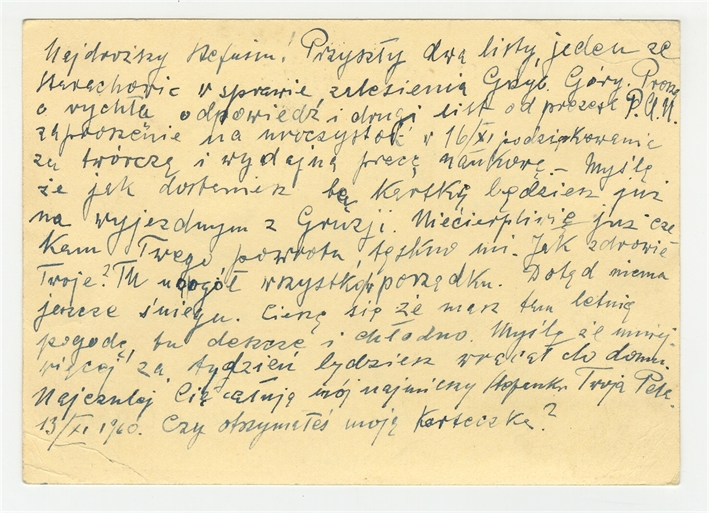 Najdroższy Stefusiu! Przyszły dwa listy, jeden ze
Starachowic w sprawie zalesienia Grzyb. Góry. Proszą
o rychłą odpowiedź i drugi list od prezesa P.A.N.
zaproszenie na uroczystość w 16/XI podziękowanie
za twórczą i wydajną pracę naukową. – Myślę
że jak dostaniesz tę kartkę będziesz już
na wyjezdnym z Gruzji. Niecierpliwie już cze
kam Twego powrotu, tęskno mi. Jak zdrowie
Twoje? Tu wogóle wszystko w porządku. Dotąd niema
jeszcze śniegu. Cieszę się że masz tam letnią
pogodę, tu deszcze i chłodno. Myślę że mniej
więcej za tydzień będziesz wracał do domu.
Najczulej Cię całuję mój najmilszy Twoja
13/XI 1960. Czy otrzymałeś moją karteczkę?